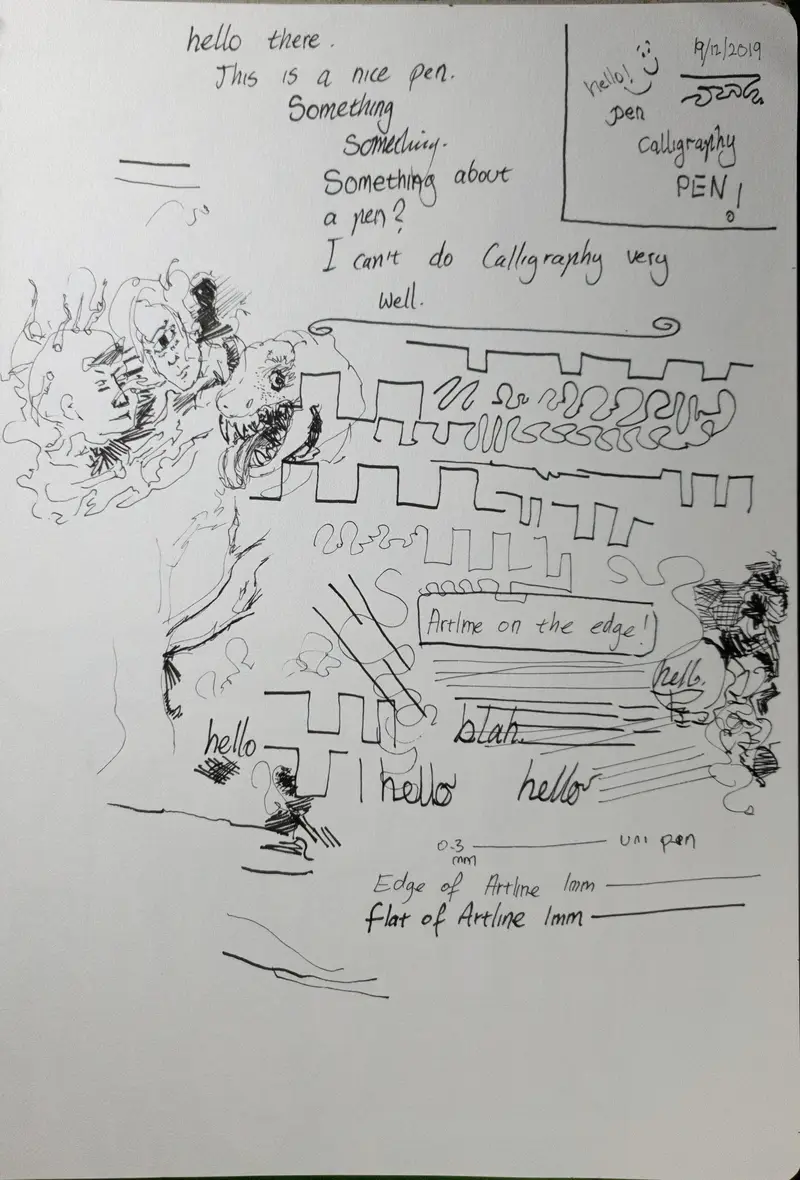 hello there.
This is a nice pen.
Something
Something.
Something about
a pen?
I can't do Calligraphy very
well.
19/12/2019
hello!
pen
Calligraphy
PEN!
Artline on the edge!
hello.
blah.
hello
hello
hello
0.3 mm uni pen
Edge of Artline 1mm
flat of Artline 1mm